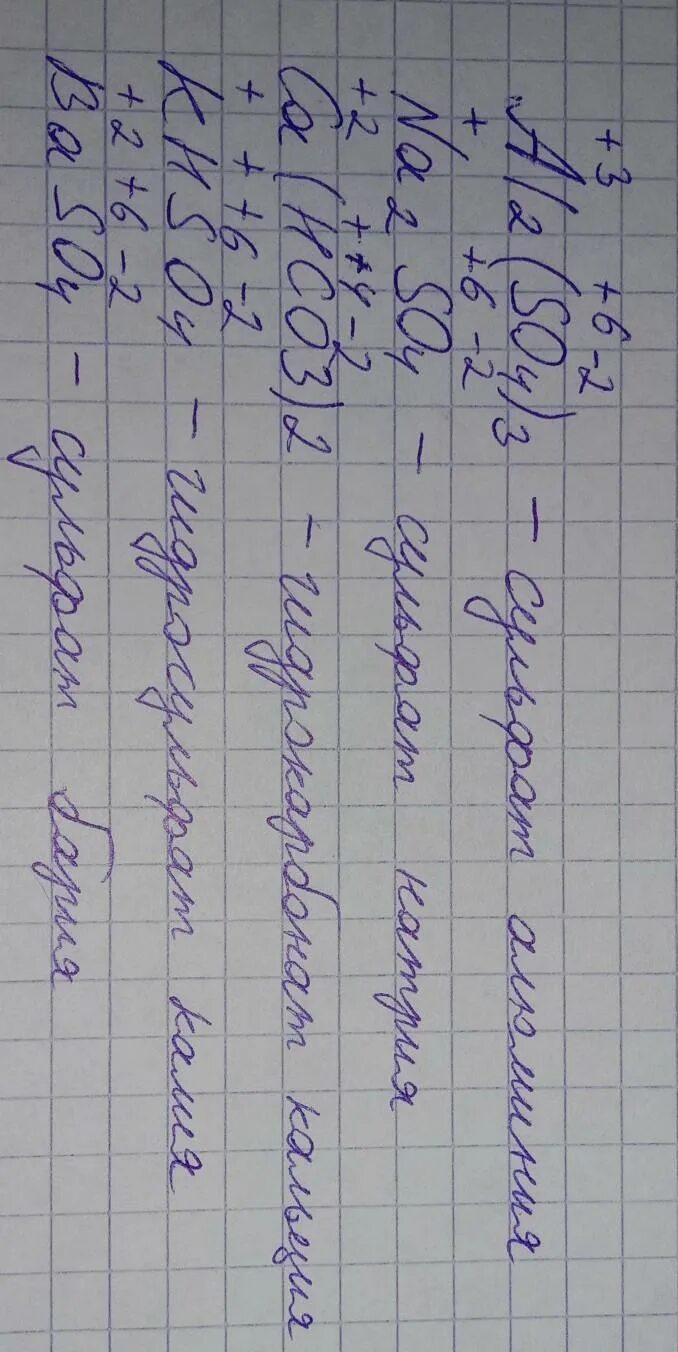 +3 +6 -2
Al2(SO4)3 – сульфат алюминия
+ +6 -2
Na2 SO4 – сульфат натрия
+2 + +4 -2
Ca(HCO3)2 – гидрокарбонат кальция
+ + +6 -2
KHSO4 – гидросульфат калия
+2 +6 -2
BaSO4 – сульфат бария